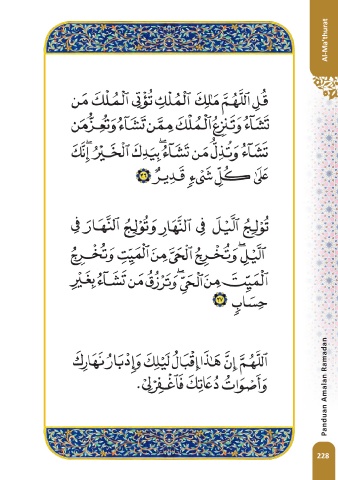 Al-Ma'thurat
قُلِ ٱللَّهُمَّ مَٰلِكَ ٱلْمُلْكِ تُؤْتِى ٱلْمُلْكَ مَن
تَشَآءُ وَتَنزِعُ ٱلْمُلْكَ مِمَّن تَشَآءُ وَتُعِزُّ مَن
تَشَآءُ وَتُذِلُّ مَن تَشَآءُ ۖ بِيَدِكَ ٱلْخَيْرُ ۖ إِنَّكَ
عَلَىٰ كُلِّ شَىْءٍ قَدِيرٌ ٢٦
تُولِجُ ٱلَّيْلَ فِى ٱلنَّهَارِ وَتُولِجُ ٱلنَّهَارَ فِى
ٱلَّيْلِ ۖ وَتُخْرِجُ ٱلْحَىَّ مِنَ ٱلْمَيِّتِ وَتُخْرِجُ
ٱلْمَيِّتَ مِنَ ٱلْحَىِّ ۖ وَتَرْزُقُ مَن تَشَآءُ بِغَيْرِ
حِسَابٍ ٢٧
ٱللَّهُمَّ إِنَّ هَٰذَا إِقْبَالُ لَيْلِكَ وَإِدْبَارُ نَهَارِكَ
وَأَصْوَاتُ دُعَاتِكَ فَٱغْفِرْلِىْ.
Panduan Amalan Ramadan
228